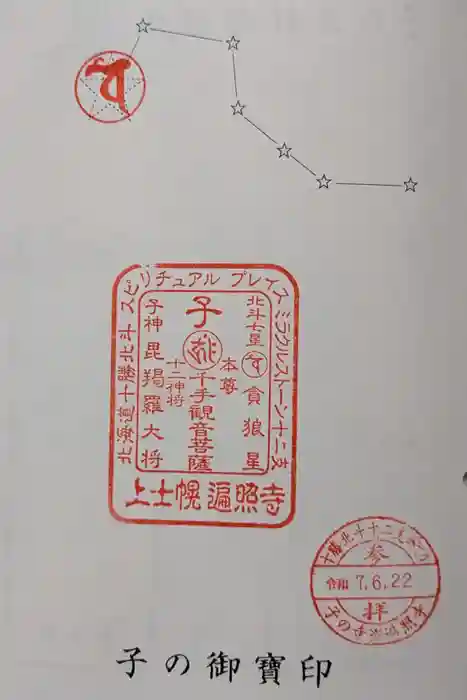 北海道十勝北斗 スピリチュアル プレイス ミラクルストーン十二支
北斗七星 貪狼星
本尊
子
千手観音菩薩
十二神将
子神 毘羯羅大将
上士幌 遍照寺
参
令和 7.6.22
拝
子の御寶印